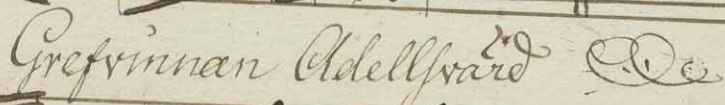 Grefvinnan Adellsvärd